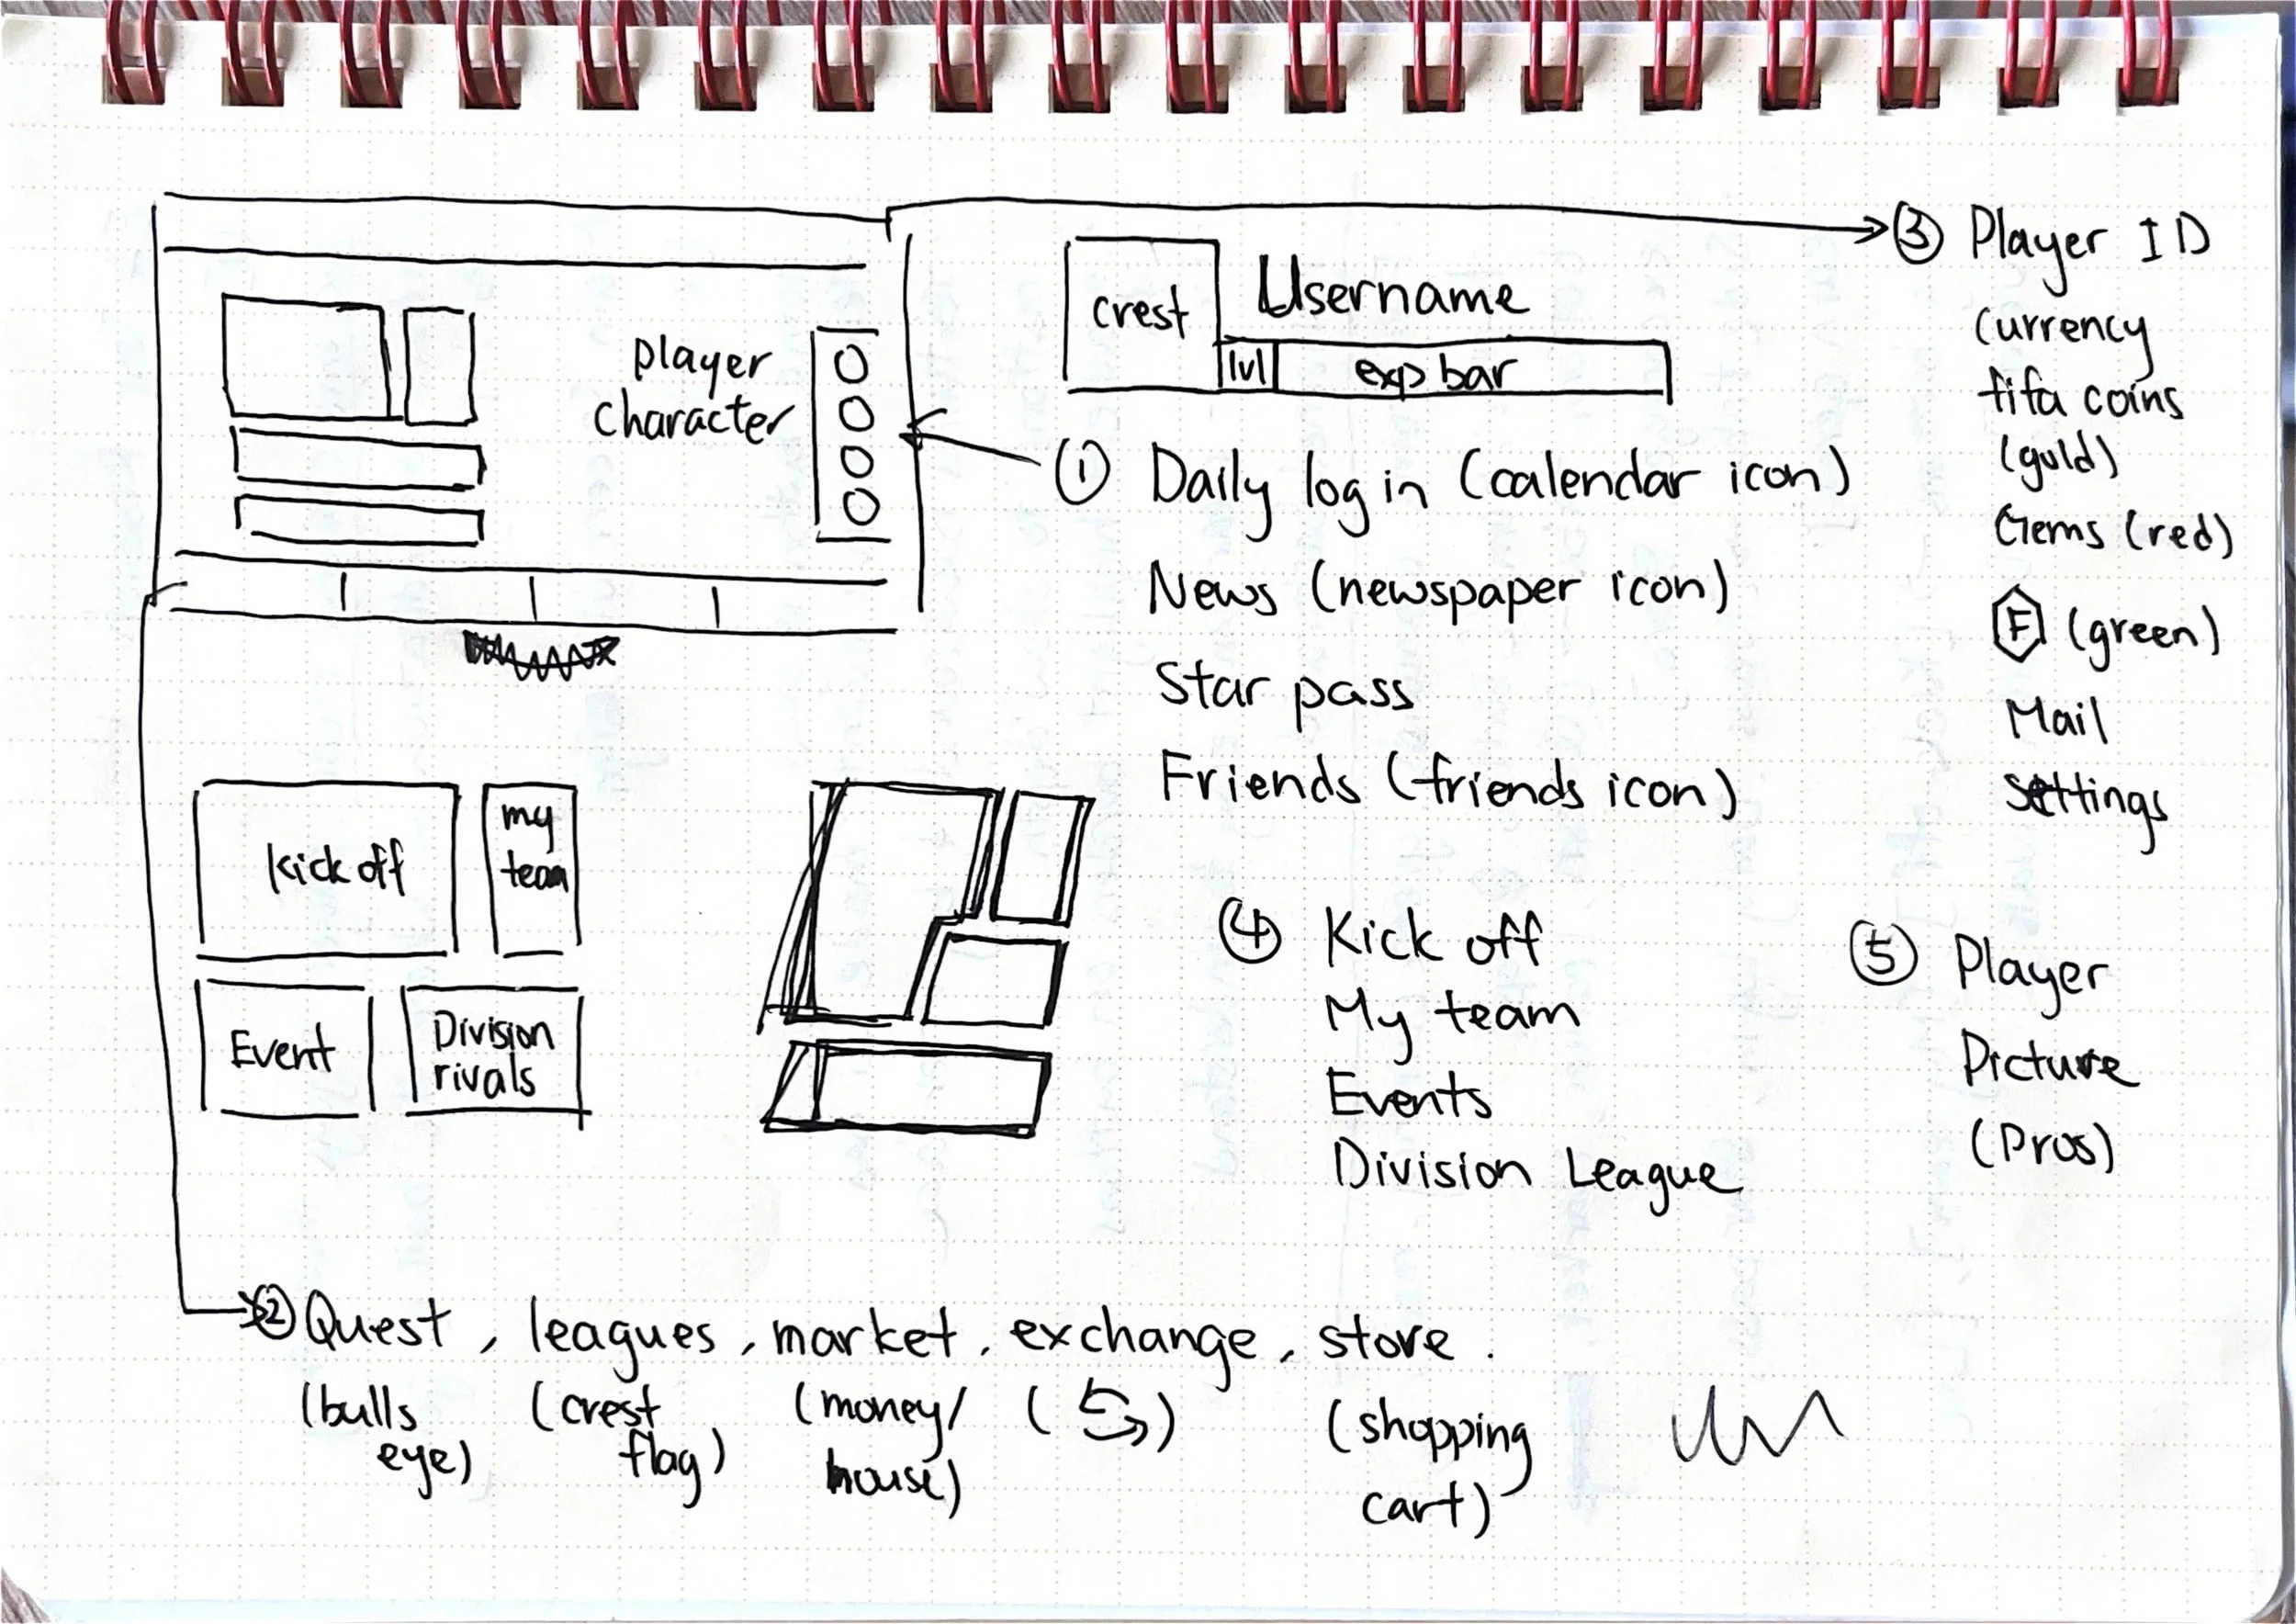 player
character
crest
Username
lvl
exp bar
③ Player ID
Currency
fifa coins
(gold)
Gems (red)
F (green)
Mail
Settings
① Daily log in (calendar icon)
News (newspaper icon)
Star pass
Friends (friends icon)
Kick off
my
team
Event
Division
rivals
④ Kick off
My team
Events
Division League
⑤ Player
Picture
(Pros)
② Quest, leagues, market, exchange, store.
(bulls
eye)
(crest
flag)
(money/
house)
(shopping
cart)